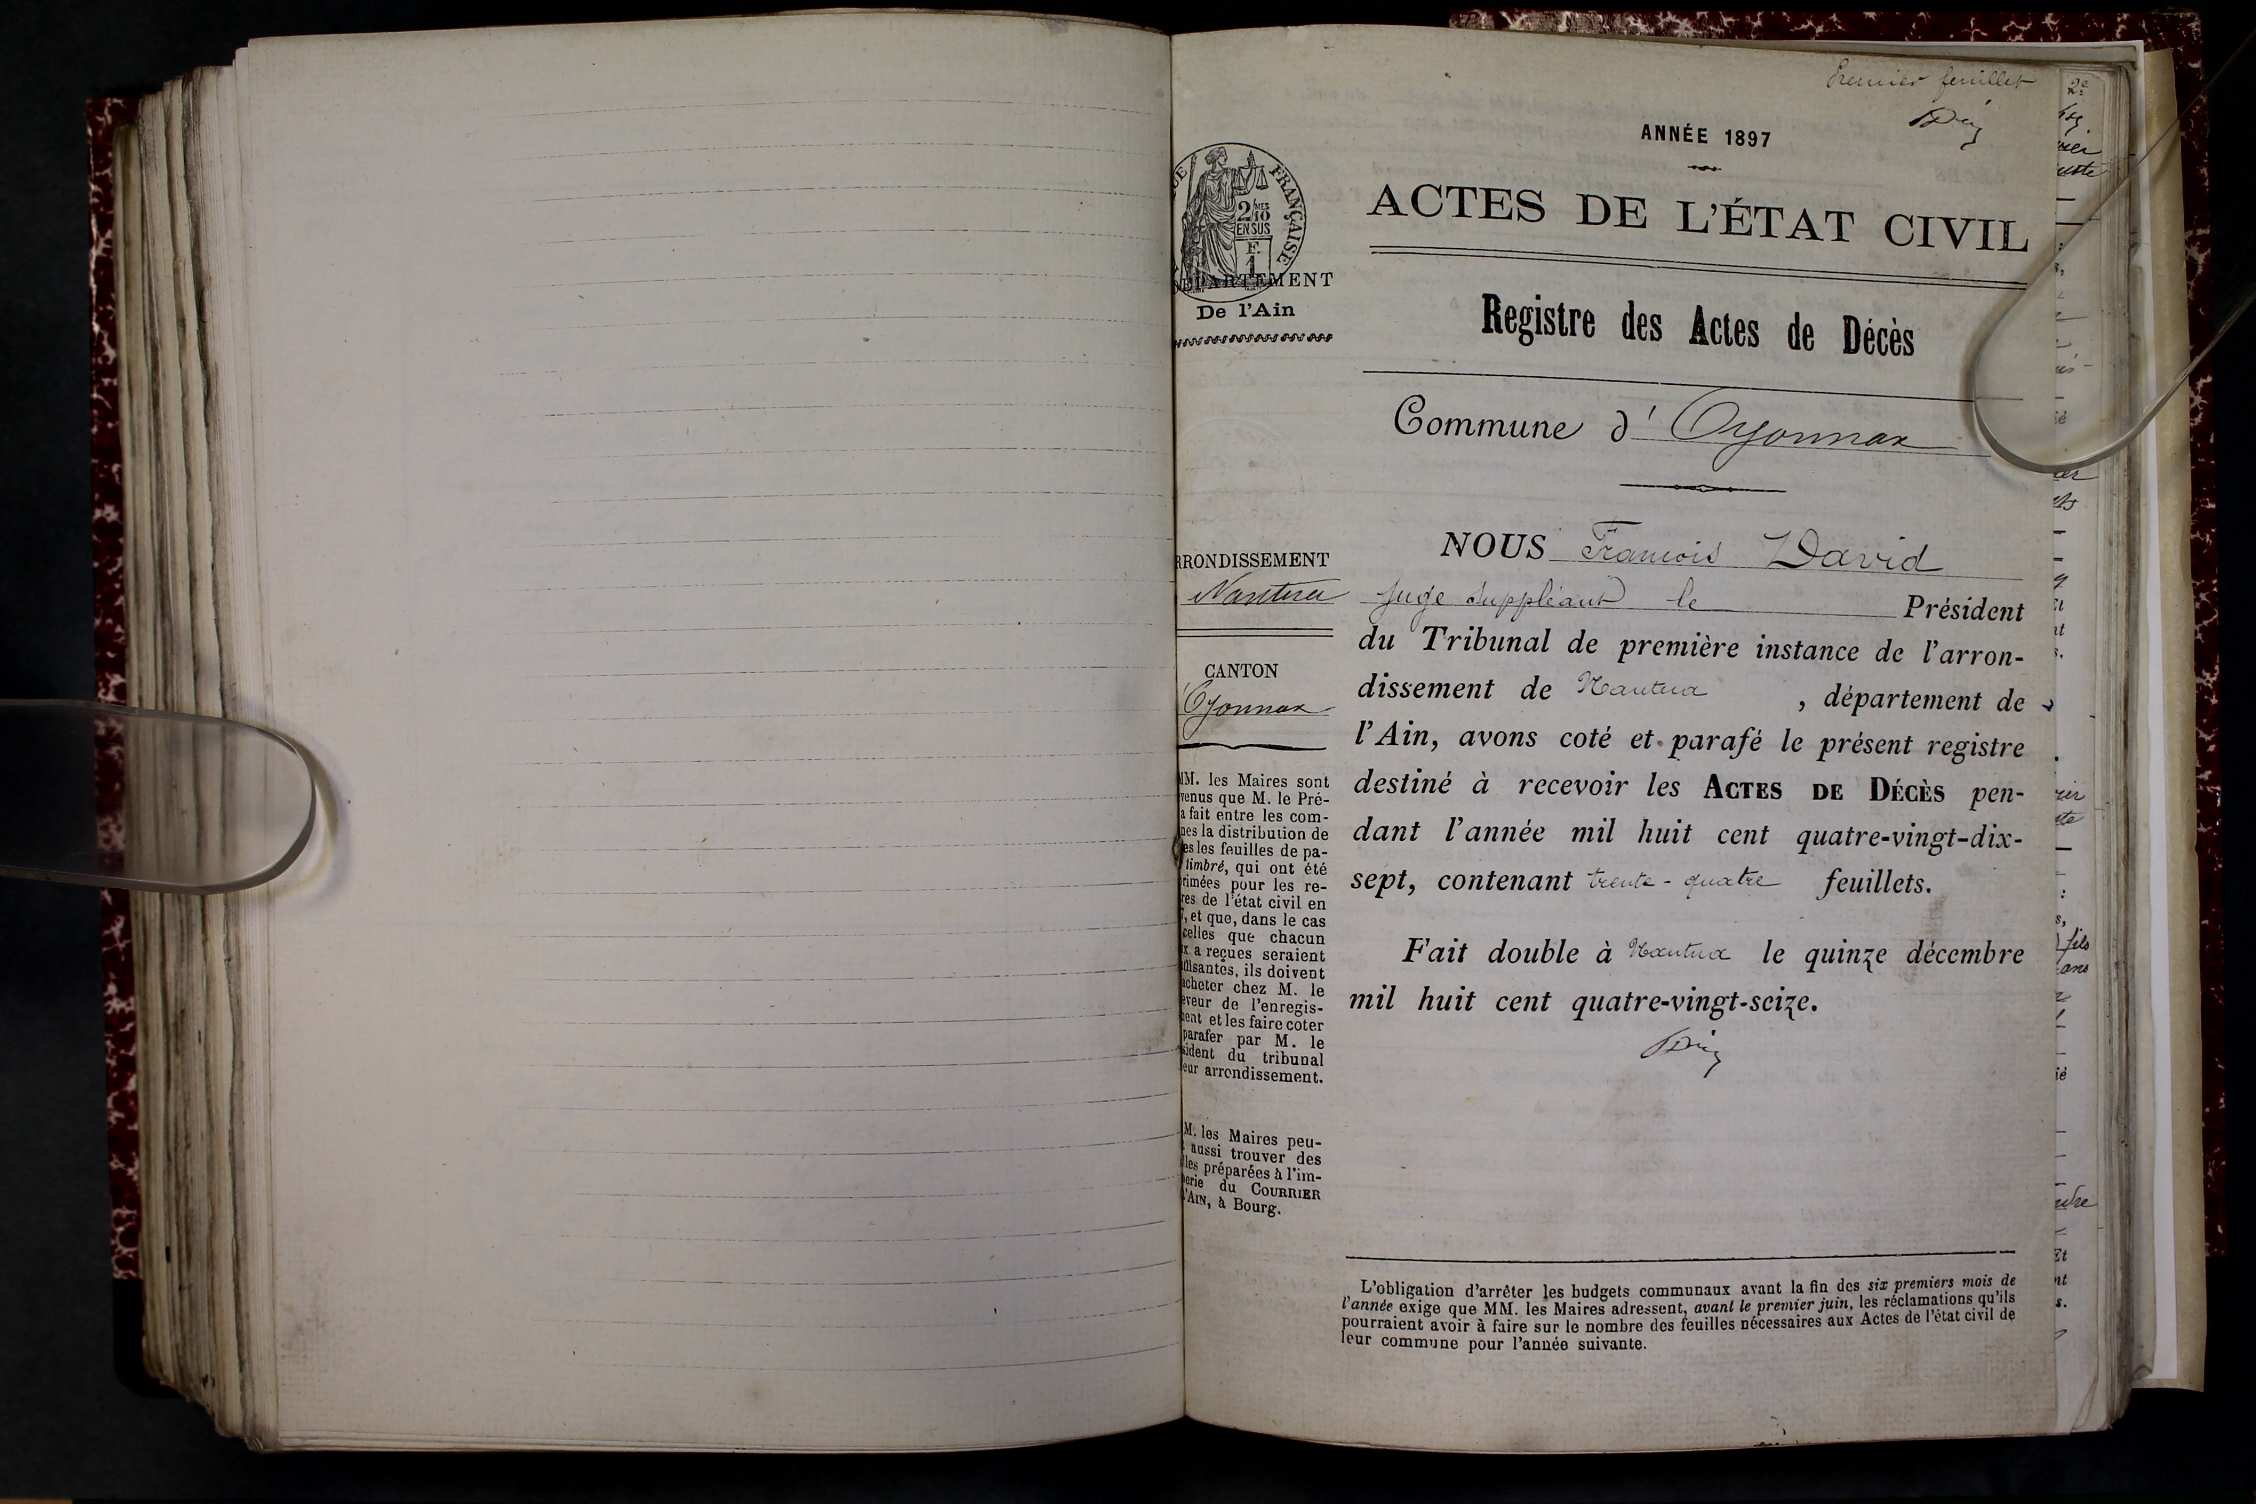 Premier feuillet
ANNÉE 1897
ACTES DE L'ÉTAT CIVIL
FRANÇAISE
2 MES 10
EN SUS
F
1
DÉPARTEMENT
De l'Ain
Registre des Actes de Décès
Commune d' Oyonnax
RRONDISSEMENT
Nantua
CANTON
Oyonnax
MM. les Maires sont
venus que M. le Pré-
a fait entre les com-
nes la distribution de
es les feuilles de pa-
timbré, qui ont été
rimées pour les re-
res de l'état civil en
, et que, dans le cas
celles que chacun
x a reçues seraient
ffisantes, ils doivent
acheter chez M. le
eveur de l'enregis-
ent et les faire coter
parafer par M. le
sident du tribunal
eur arrondissement.
M. les Maires peu-
aussi trouver des
lles préparées à l'im-
erie du COURRIER
'AIN, à Bourg.
NOUS François David
Juge suppléant le Président
du Tribunal de première instance de l'arron-
dissement de Nantua , département de
l'Ain, avons coté et parafé le présent registre
destiné à recevoir les ACTES DE DÉCÈS pen-
dant l'année mil huit cent quatre-vingt-dix-
sept, contenant trente-quatre feuillets.
Fait double à Nantua le quinze décembre
mil huit cent quatre-vingt-seize.
L'obligation d'arrêter les budgets communaux avant la fin des six premiers mois de
l'année exige que MM. les Maires adressent, avant le premier juin, les réclamations qu'ils
pourraient avoir à faire sur le nombre des feuilles nécessaires aux Actes de l'état civil de
leur commune pour l'année suivante.
2e
fils
ans